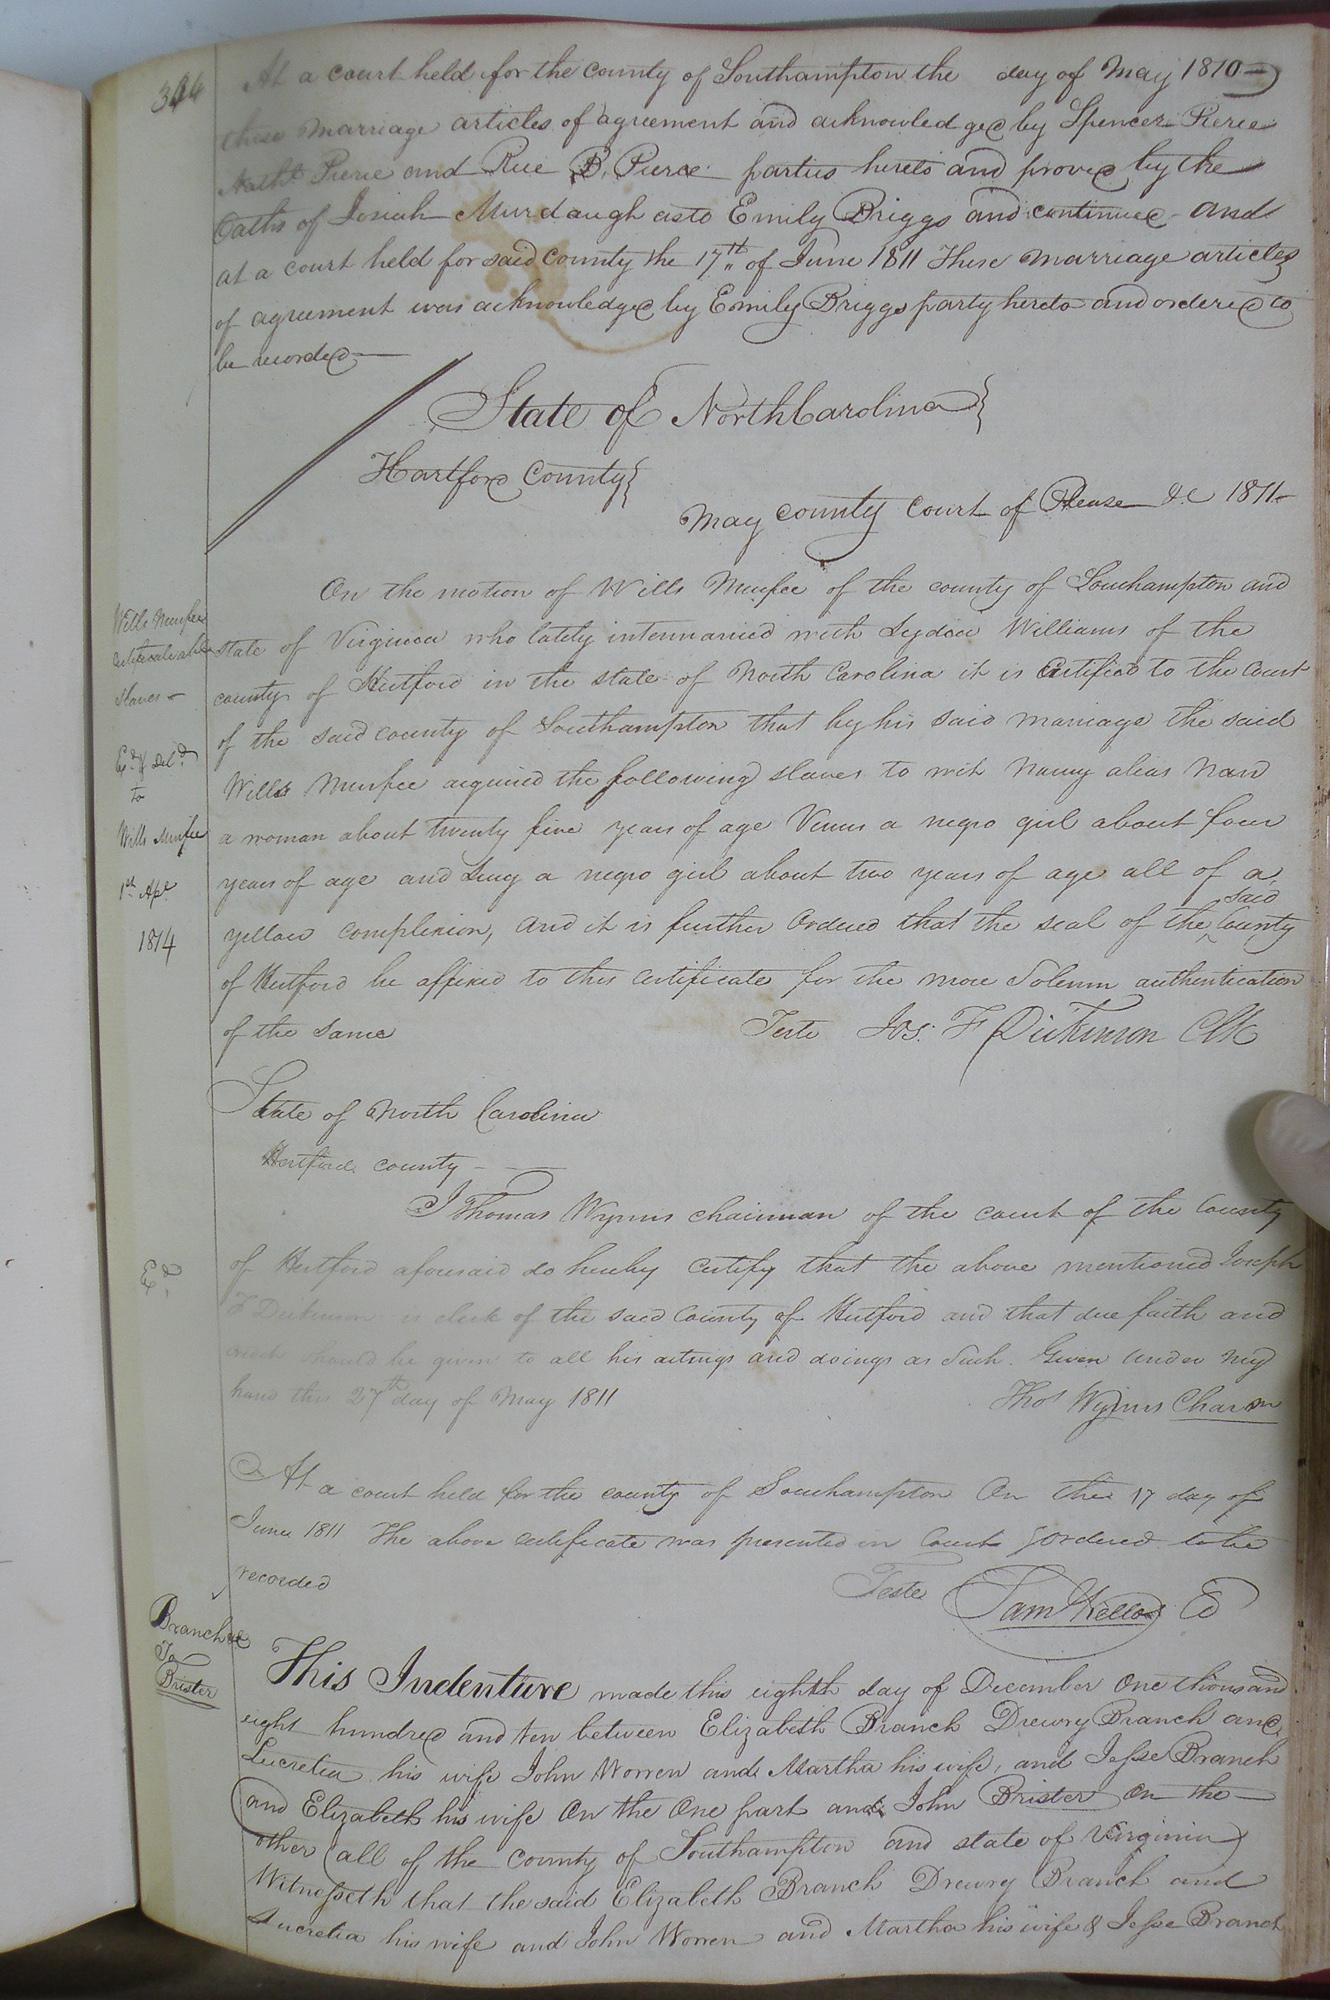 344
At a court held for the county of Southampton the day of May 1810
these Marriage articles of agreement and acknowledged by Spencer Pierce
Nathl Pierce and Rice B. Pierce parties hereto and proved by the
Oaths of Josiah Murdaugh as to Emily Briggs and continued and
at a court held for said county the 17th of June 1811 These marriage articles
of agreement was acknowledged by Emily Briggs party hereto and ordered to
be recorded
State of North Carolina
Hartford County
May county Court of Please &c 1811
On the motion of Wills Munfee of the county of Southampton and
state of Virginia who lately intermarried with Lydia Williams of the
county of Hertford in the state of North Carolina it is Certified to the Court
of the said county of Southampton that by his said marriage the said
Wills Munfee acquired the following slaves to wit Nancy alias Nan
a woman about twenty five years of age Venus a negro girl about four
years of age and Lucy a negro girl about two years of age all of a
yellow complexion, and it is further Ordered that the seal of the said County
of Hertford be affixed to this certificate for the more Solemn authentication
of the same
Teste Jos: F Dickinson Clk
Wills Munfee
slaves
Exd & Deld
to
Wills Munfee
1st Apl
1814
State of North Carolina
Hertford county
I Thomas Wynns chairman of the court of the County
of Hertford aforesaid do hereby certify that the above mentioned Joseph
F Dickinson is clerk of the said County of Hertford and that due faith and
credit should be given to all his actings and doings as Such. Given under my
hand this 27th day of May 1811
Thos Wynns Chairm
Exd
At a court held for the county of Southampton On the 17 day of
June 1811 The above certificate was presented in Court & ordered to be
recorded
Teste Sam Kello Cl
Branch &c
To
Brister
This Indenture made this eighth day of December One thousand
eight hundred and ten between Elizabeth Branch Drewry Branch and
Lucretia his wife John Worren and Martha his wife, and Jesse Branch
and Elizabeth his wife On the One part and John Brister on the
other (all of the county of Southampton and state of Virginia)
Witnesseth that the said Elizabeth Branch Drewry Branch and
Lucretia his wife and John Worren and Martha his wife & Jesse Branch